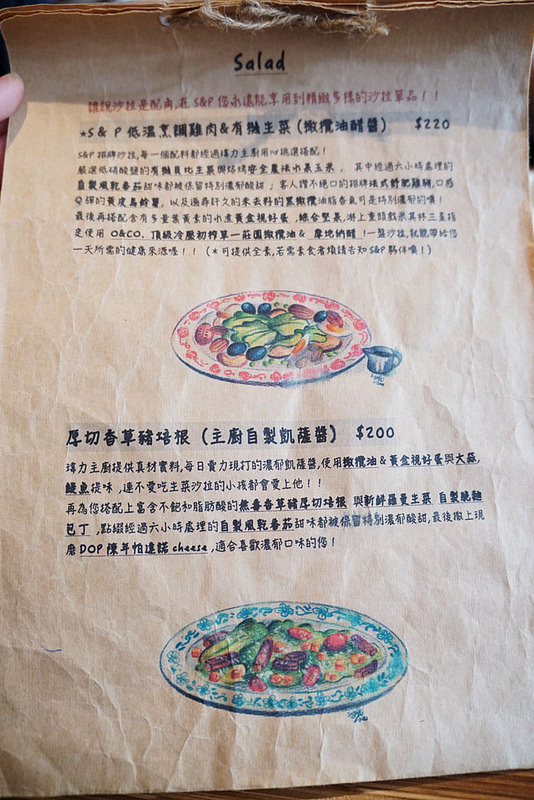 Salad
誰說沙拉是配角,在 S&P 您永遠能享用到精緻多樣的沙拉單品！！
*S & P 低溫烹調雞肉&有機生菜 (橄欖油醋醬) $220
S&P 招牌沙拉,每一個配料都經過瑋力主廚用心挑選搭配！
嚴選低硝酸鹽的有機貝比生菜與焙烤安全農法水果玉米， 其中經過六小時處理的
自製風乾番茄甜味都被保留特別濃郁酸甜；客人讚不絕口的招牌法式舒肥雞胸,口感
Q彈的黃皮馬鈴薯，以及遍尋許久的來去料的黑橄欖油脂香氣可是特別的噢！
最後再搭配含有多量葉黃素的水煮黃盒視好蛋,綜合堅果,淋上重頭戲米其林三星指
定使用 O&CO. 頂級冷壓初榨單一莊園橄欖油& 摩地納醋！一盤沙拉,就能帶給您
一天所需的健康來源喔！！(＊可提供全素,若需素食者煩請告知 S&P 夥伴噢！)
厚切香草豬培根 (主廚自製凱薩醬) $200
瑋力主廚提供真材實料,每日賣力現打的濃郁凱薩醬,使用橄欖油&黃盒視好蛋與大蒜,
鯷魚提味 ,連不愛吃生菜沙拉的小孩都會愛上他！！
再為您搭配上富含不飽和脂肪酸的無毒香草豬厚切培根 與新鮮羅曼生菜 自製脆麵
包丁 ,點綴經過六小時處理的自製風乾番茄甜味都被保留特別濃郁酸甜,最後撒上現
磨DOP 陳年帕達諾 cheese ,適合喜歡濃郁口味的您！